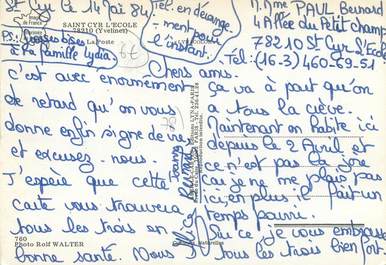 St Cyr Le 14 Mai 84
SAINT CYR L'ECOLE
78210 (Yvelines)
La Poste
P.S: Grosses bises
à la famille Lydia
Tel. en dérange-
-ment pour
l'instant.
M. Mme PAUL Bernard
4 Allée du Petit champ
78210 St Cyr l'Ecole
Tel: (16-3) 460-59-51
Chers amis.
c'est avec enormement
de retard qu'on vous
donne enfin signe de vie
et excusez-nous.
J'espère que cette
carte vous trouvera
tous les trois en
bonne santé. Nous
ça va à part qu'on
a tous la crève.
Maintenant on habite ici
depuis le 2 Avril et
ce n'est pas la joie
car je ne me plais pas
ici, en plus il fait un
temps pourri.
Sur ce je vous embrasse
tous les trois bien fort.
760
Photo Rolf WALTER
Naturelles